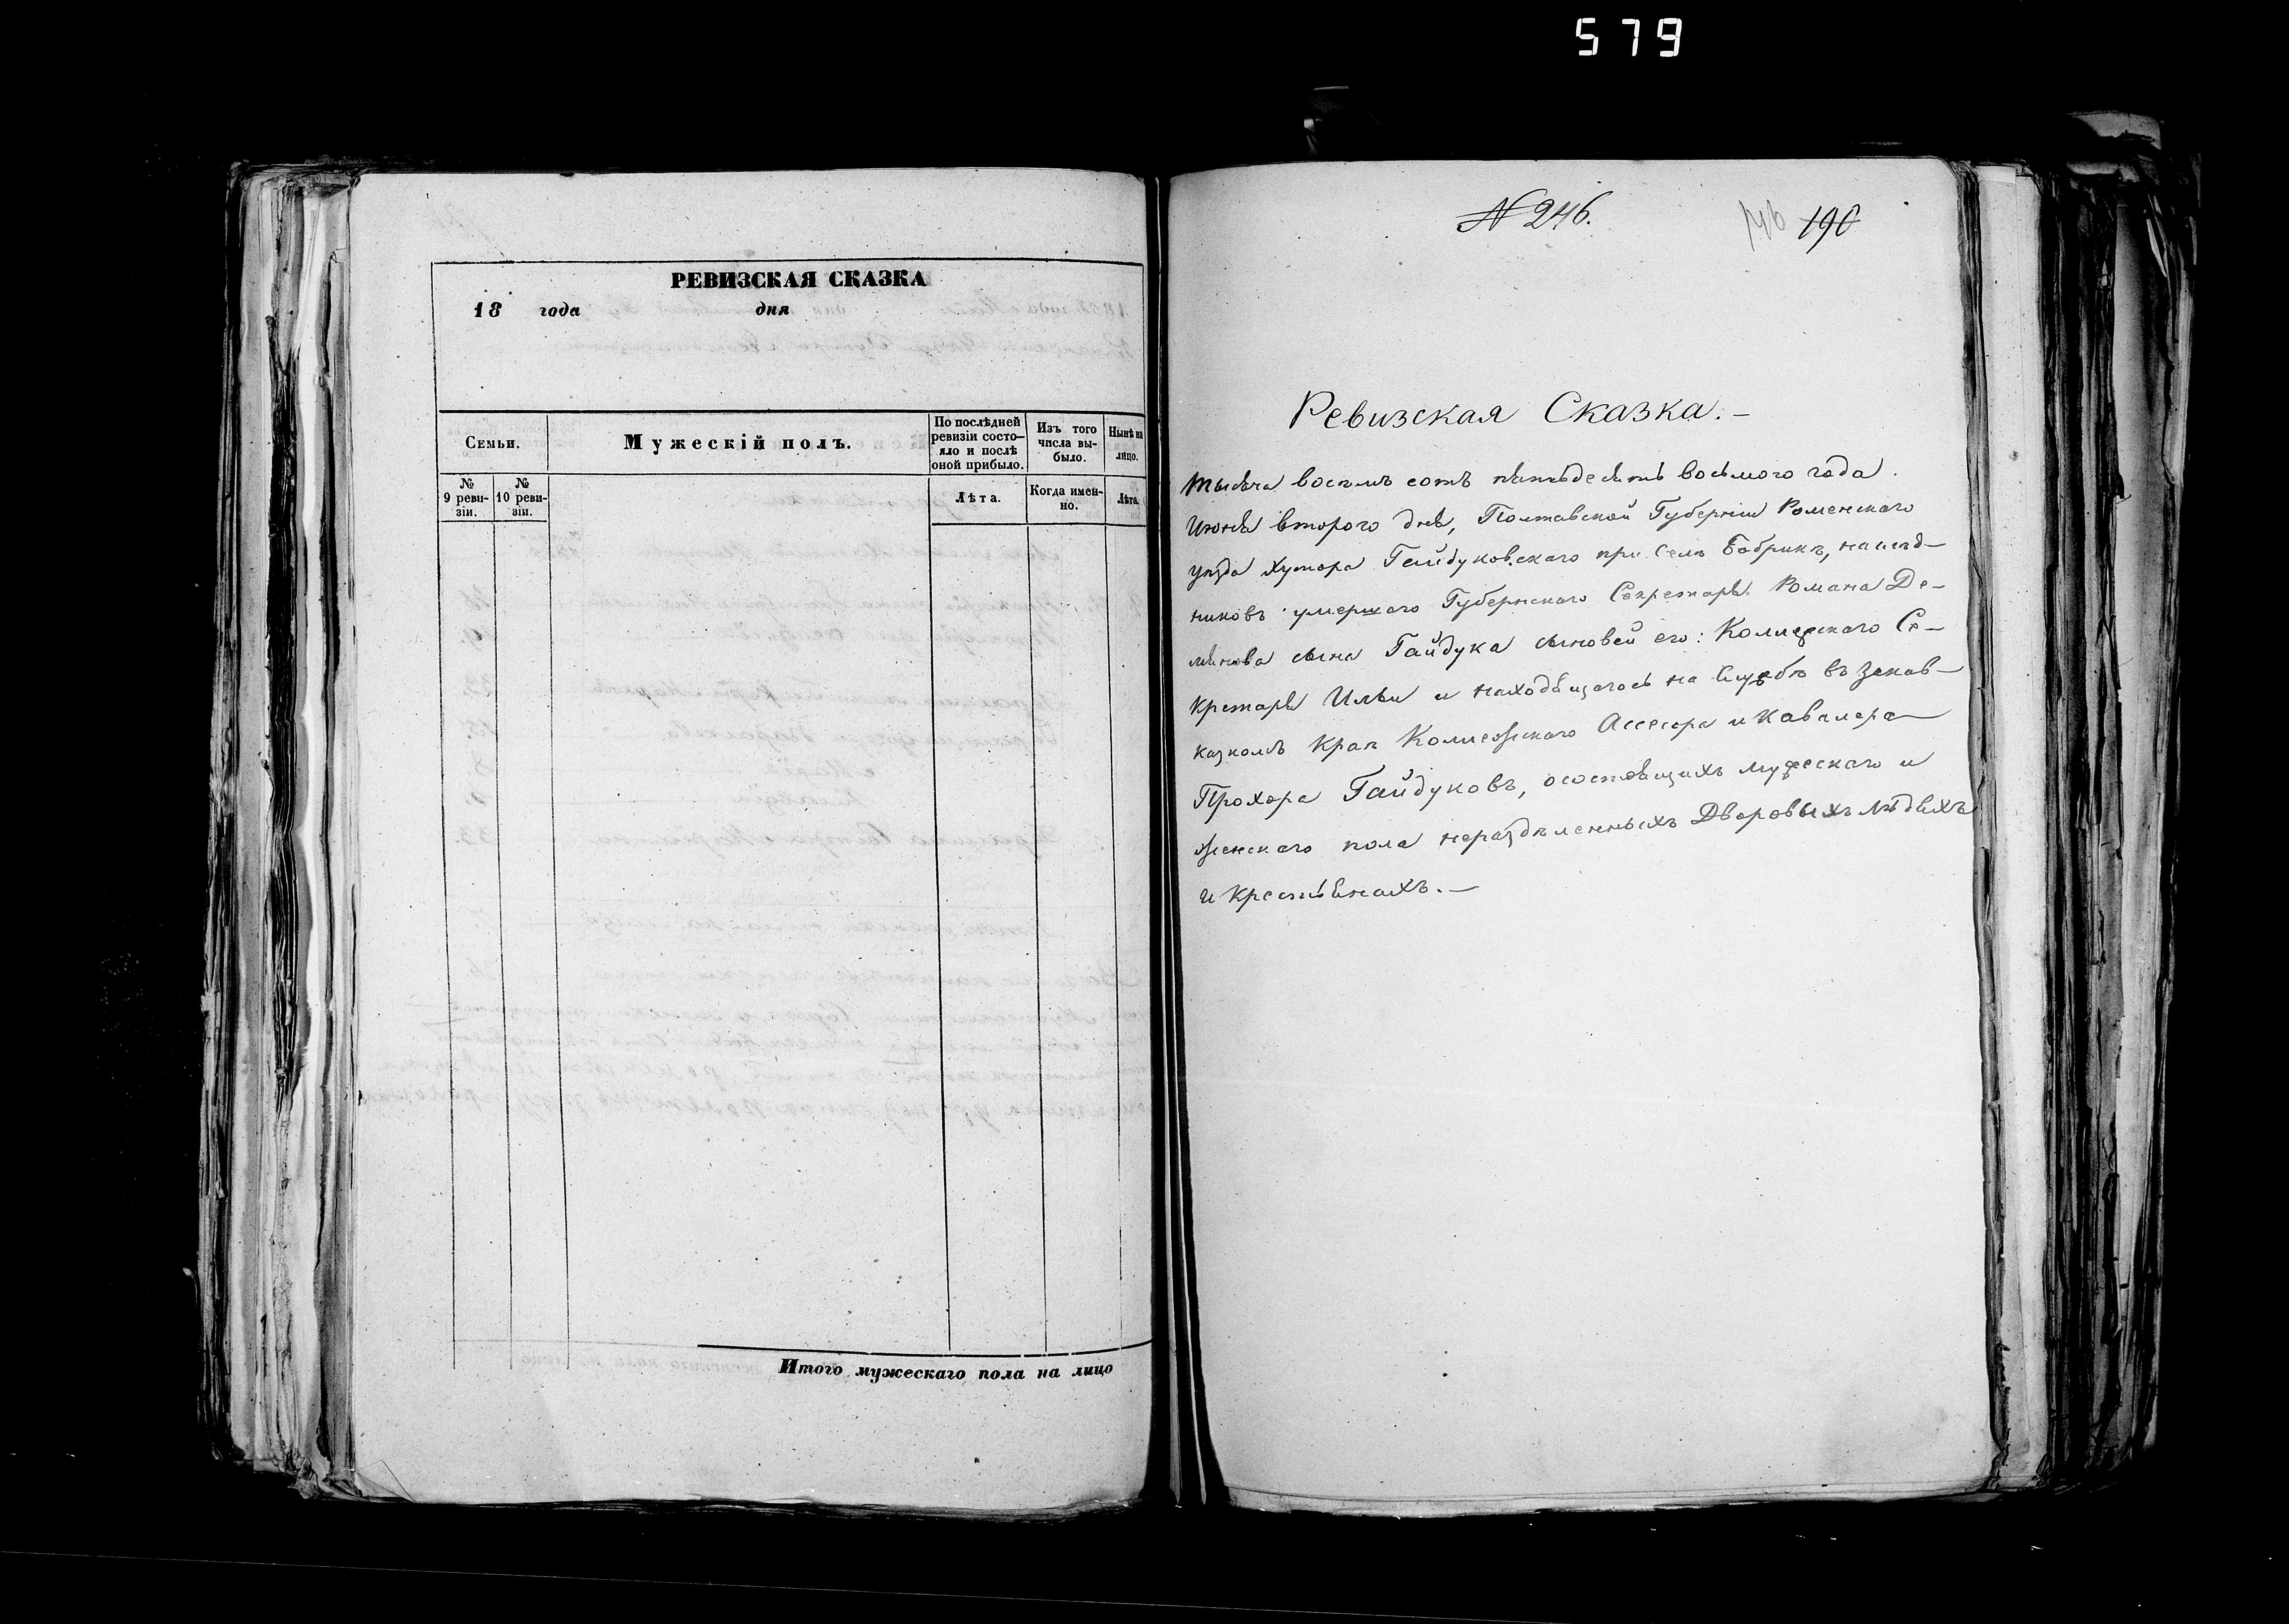 579
РЕВИЗСКАЯ СКАЗКА
18 года дня
Семьи.
Мужескій полъ.
По послѣдней ревизіи состо-
яло и послѣ
оной прибыло.
Изъ того
числа вы-
было.
Нынѣ на
лицо.
№
9 реви-
зіи.
№
10 реви-
зіи.
Лѣта.
Когда имен-
но.
Лѣта.
Итого мужескаго пола на лицо
№ 246.
190
Ревизская Сказка.-
тысяча восемь сотъ пятьдесятъ восьмого года
Июня второго дня, Полтавской Губерніи Роменскаго
уѣзда Хутора Гайдуковскаго при Селѣ Бобрикѣ, наслѣд-
никовъ умершаго Губернскаго Секретаря Романа Де-
мянова сына Гайдука сыновей его: Колежскаго Се-
кретаря Ильи и находящагося на Службѣ въ Закав-
казкомъ Краѣ Колежскаго Асесора и Кавалера
Прохора Гайдуковъ, осостоящихъ мужескаго и
женскаго пола нераздѣленныхъ Дворовыхъ людяхъ
и Крестьянахъ.-